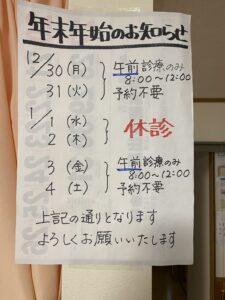 年末年始のお知らせ
12/30(月) 午前診療のみ
8:00〜12:00
31(火) 予約不要
1/1(水) 休診
2(木)
3(金) 午前診療のみ
8:00〜12:00
4(土) 予約不要
上記の通りとなります
よろしくお願いいたします